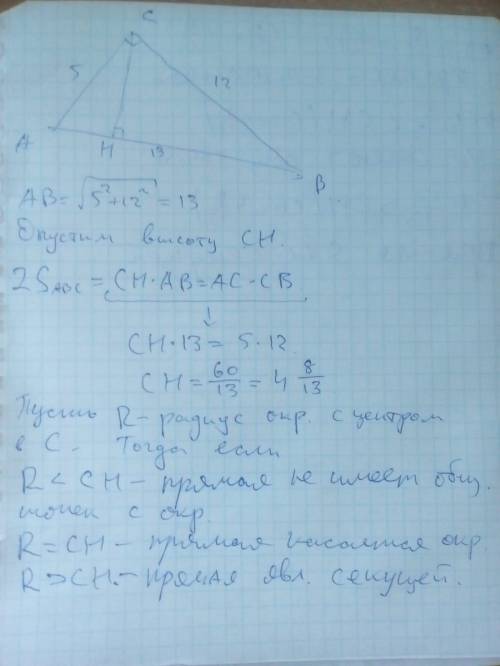 C
5
12
A
H
13
B
AB = √5²+12² = 13
Опустим высоту CH.
2S_ABC = CH·AB = AC·CB
↓
CH·13 = 5·12
CH = 60/13 = 4 8/13
Пусть R - радиус окр. с центром
в C. Тогда если
R < CH - прямая не имеет общ.
точек с окр.
R = CH - прямая касается окр.
R > CH - прямая явл. секущей.